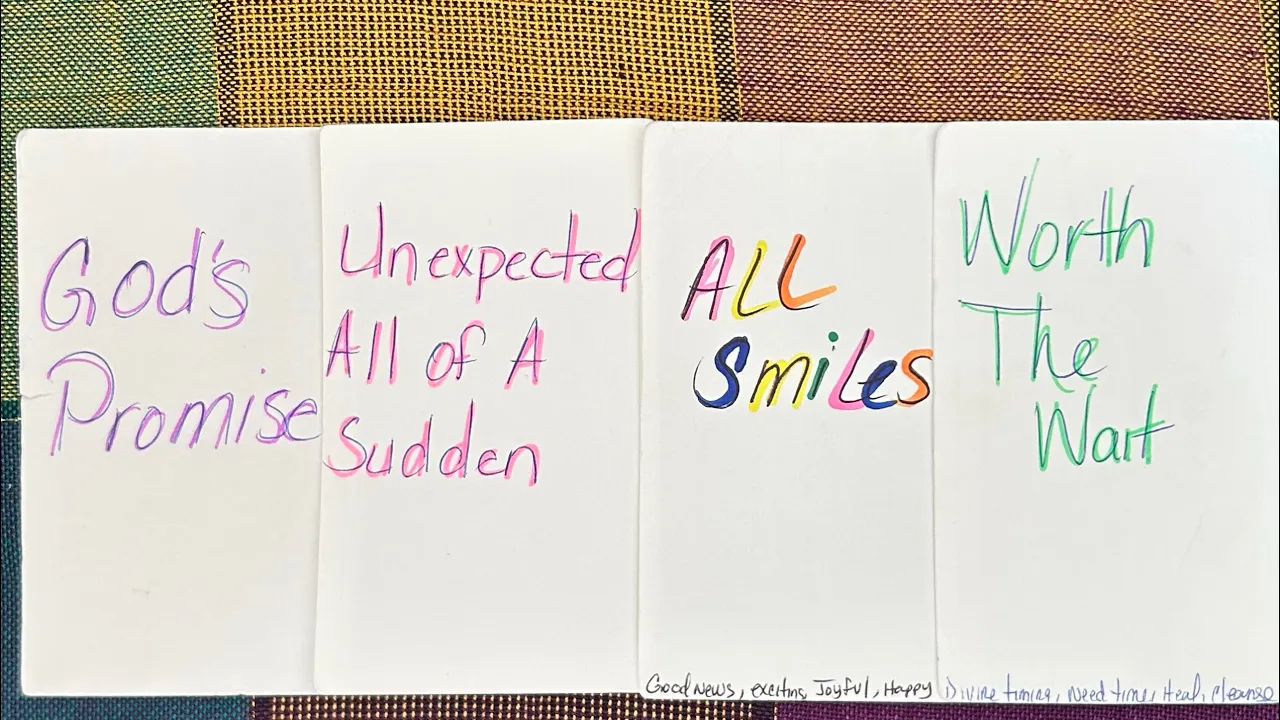 God's
Promise
Unexpected
All of A
Sudden
ALL
SmiLes
Worth
The
Wait
Good News, exciting, Joyful, Happy
Divine timing, Need time, Heal, Cleanse